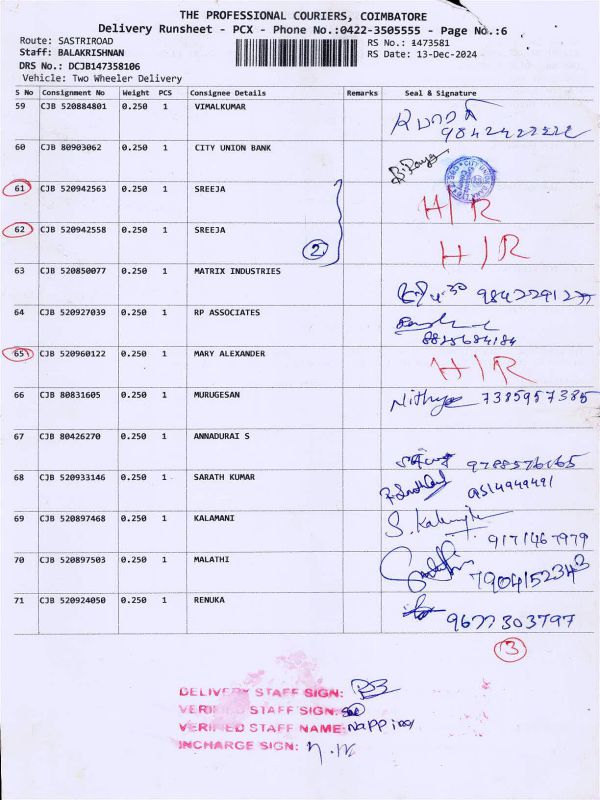 THE PROFESSIONAL COURIERS, COIMBATORE
Delivery Runsheet - PCX - Phone No.:0422-3505555 - Page No.:6
Route: SASTRIROAD
RS No.: 1473581
Staff: BALAKRISHNAN
RS Date: 13-Dec-2024
DRS No.: DCJB147358106
Vehicle: Two Wheeler Delivery
S No Consignment No Weight PCS Consignee Details Remarks Seal & Signature
59 CJB 520884801 0.250 1 VIMALKUMAR
60 CJB 80903062 0.250 1 CITY UNION BANK
61 CJB 520942563 0.250 1 SREEJA H/R
62 CJB 520942558 0.250 1 SREEJA H/R
2
63 CJB 520850077 0.250 1 MATRIX INDUSTRIES
64 CJB 520927039 0.250 1 RP ASSOCIATES
8825684184
65 CJB 520960122 0.250 1 MARY ALEXANDER H/R
66 CJB 80831605 0.250 1 MURUGESAN Nithya 7385957385
67 CJB 80426270 0.250 1 ANNADURAI S
9788576165
68 CJB 520933146 0.250 1 SARATH KUMAR
9514949491
69 CJB 520897468 0.250 1 KALAMANI
9171467979
70 CJB 520897503 0.250 1 MALATHI
7904152343
71 CJB 520924050 0.250 1 RENUKA
9677303797
3
DELIVERY STAFF SIGN:
VERIFIED STAFF SIGN:
VERIFIED STAFF NAME:
INCHARGE SIGN: